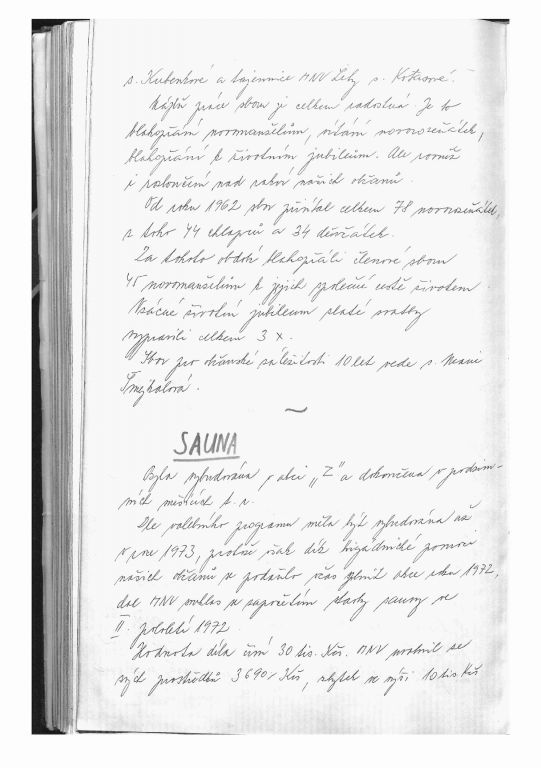 s. Kubenkové a tajemnice MNV Lety s. Kotasové.
Náplň práce sboru je celkem radostná. Je to
blahopřání novomanželům, vítání novorozeňátek,
blahopřání k životním jubileům. Ale rovněž
i rozloučení nad rakví našich občanů.
Od roku 1962 sbor přivítal celkem 78 novorozeňátek,
z toho 44 chlapců a 34 děvčátek.
Za tohoto období blahopřáli členové sboru
45 novomanželům k jejich společné cestě životem.
Vzácné životní jubileum zlaté svatby
vypravili celkem 3 x.
Sbor pro občanské záležitosti 10 let vede s. Marie
Šmejkalová.
~
SAUNA
Byla vybudována v akci „Z" a dokončena v podzim-
ních měsících t. r.
Dle volebního programu měla být vybudována až
v roce 1973, protože však díky brigádnické pomoci
našich občanů se podařilo včas splnit akce roku 1972,
dal MNV souhlas se započetím stavby sauny ve
II. pololetí 1972.
Hodnota díla činí 30 tis. Kčs. MNV uvolnil ze
svých prostředků 3690,- Kčs, zbytek ve výši 10 tis Kčs